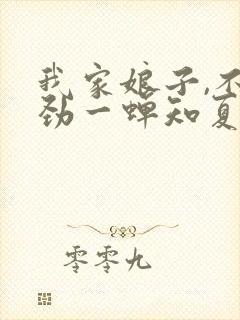 我家娘子,不
劲一蝉知夏
零零九